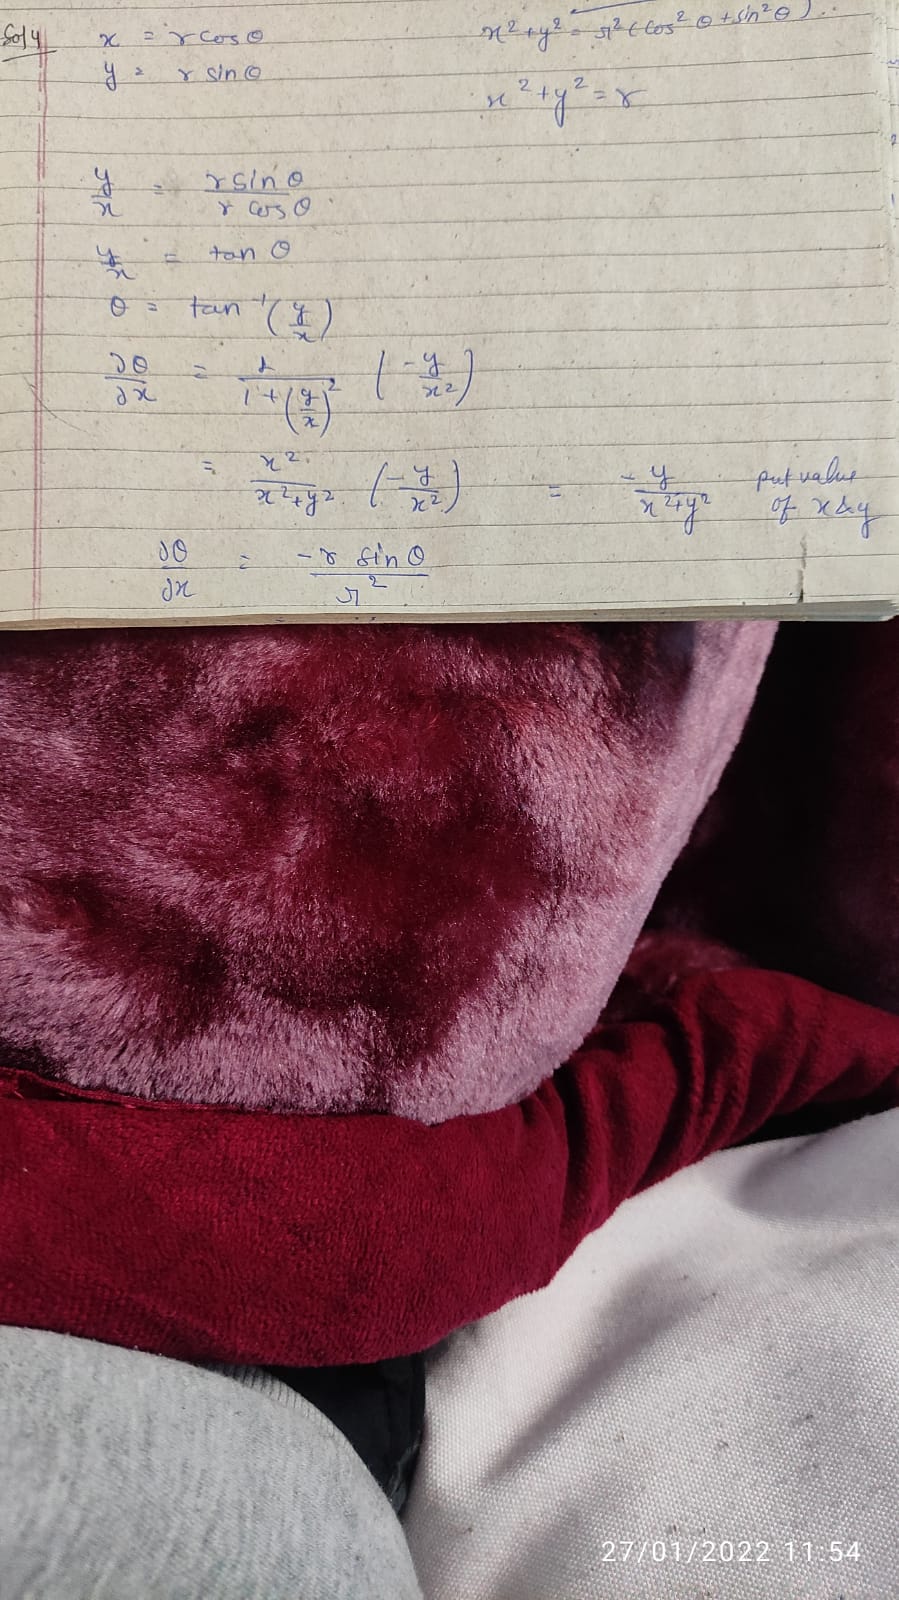 Sol 4 x = r cos θ
y = r sin θ
x² + y² = r² (cos² θ + sin² θ)
x² + y² = r
y/x = r sin θ / r cos θ
y/x = tan θ
θ = tan⁻¹ (y/x)
∂θ/∂x = 1/(1 + (y/x)²) (-y/x²)
= x²/(x² + y²) (-y/x²) = -y/(x² + y²) put value of x & y
∂θ/∂x = -r sin θ / r²
27/01/2022 11:54